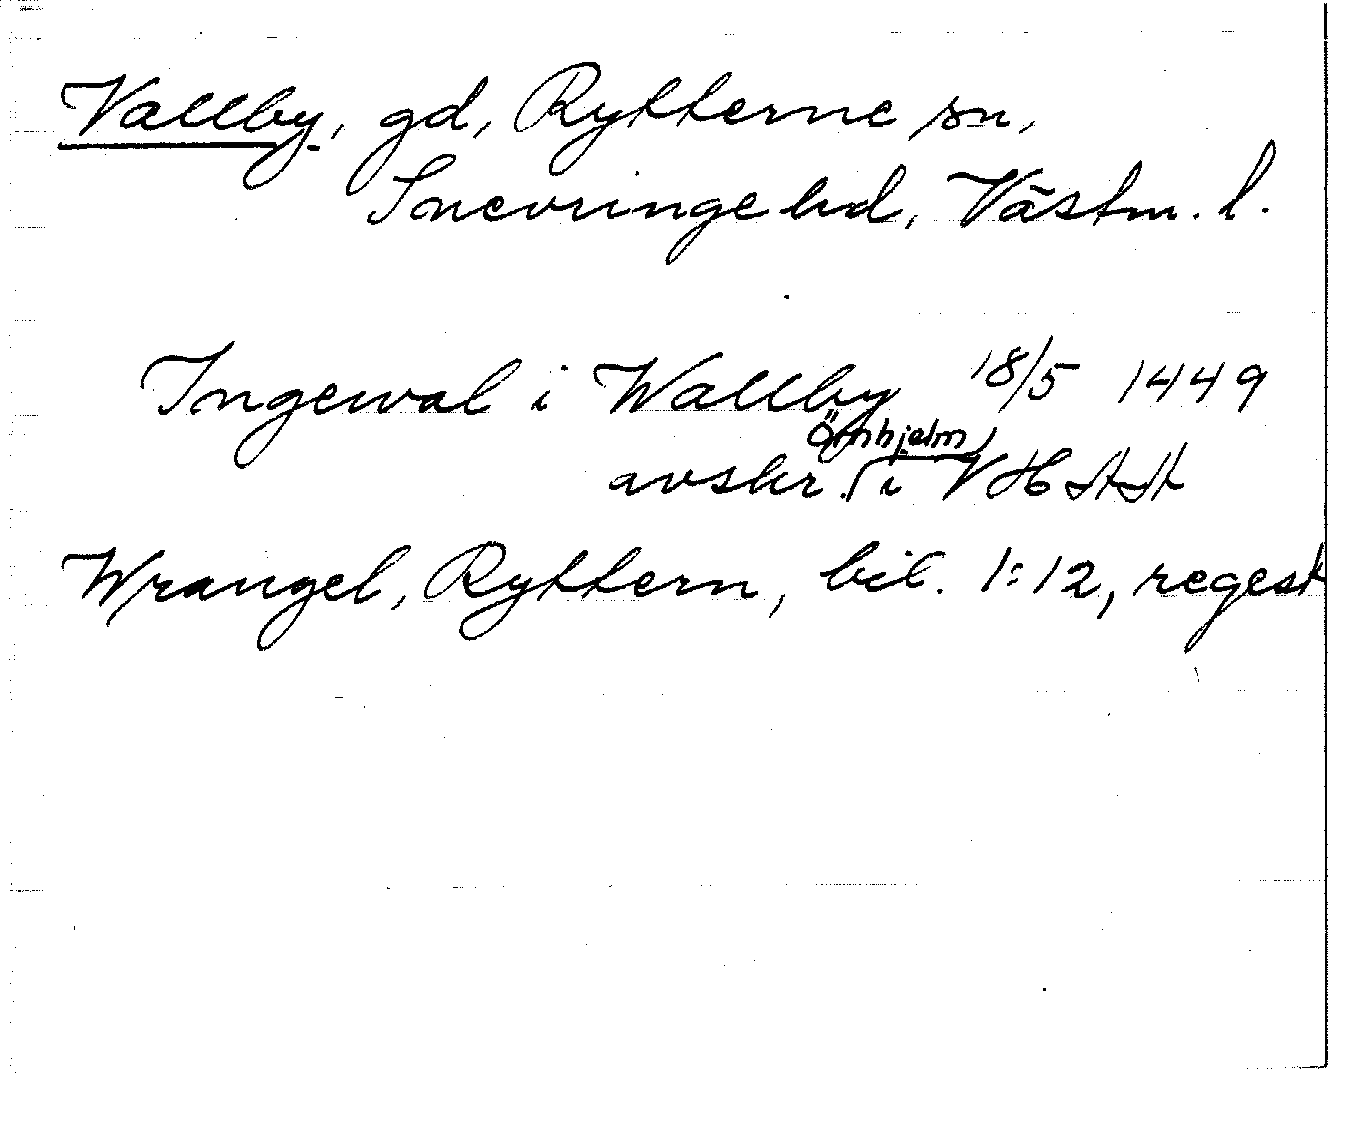 Vallby, gd, Rytterne sn,
Snevringe hd, Västm. l.
Ingewal i Wallby 18/5 1449
Örnhjelm
avskr. i VHAA
Wrangel, Ryttern, bil. 1:12, regest